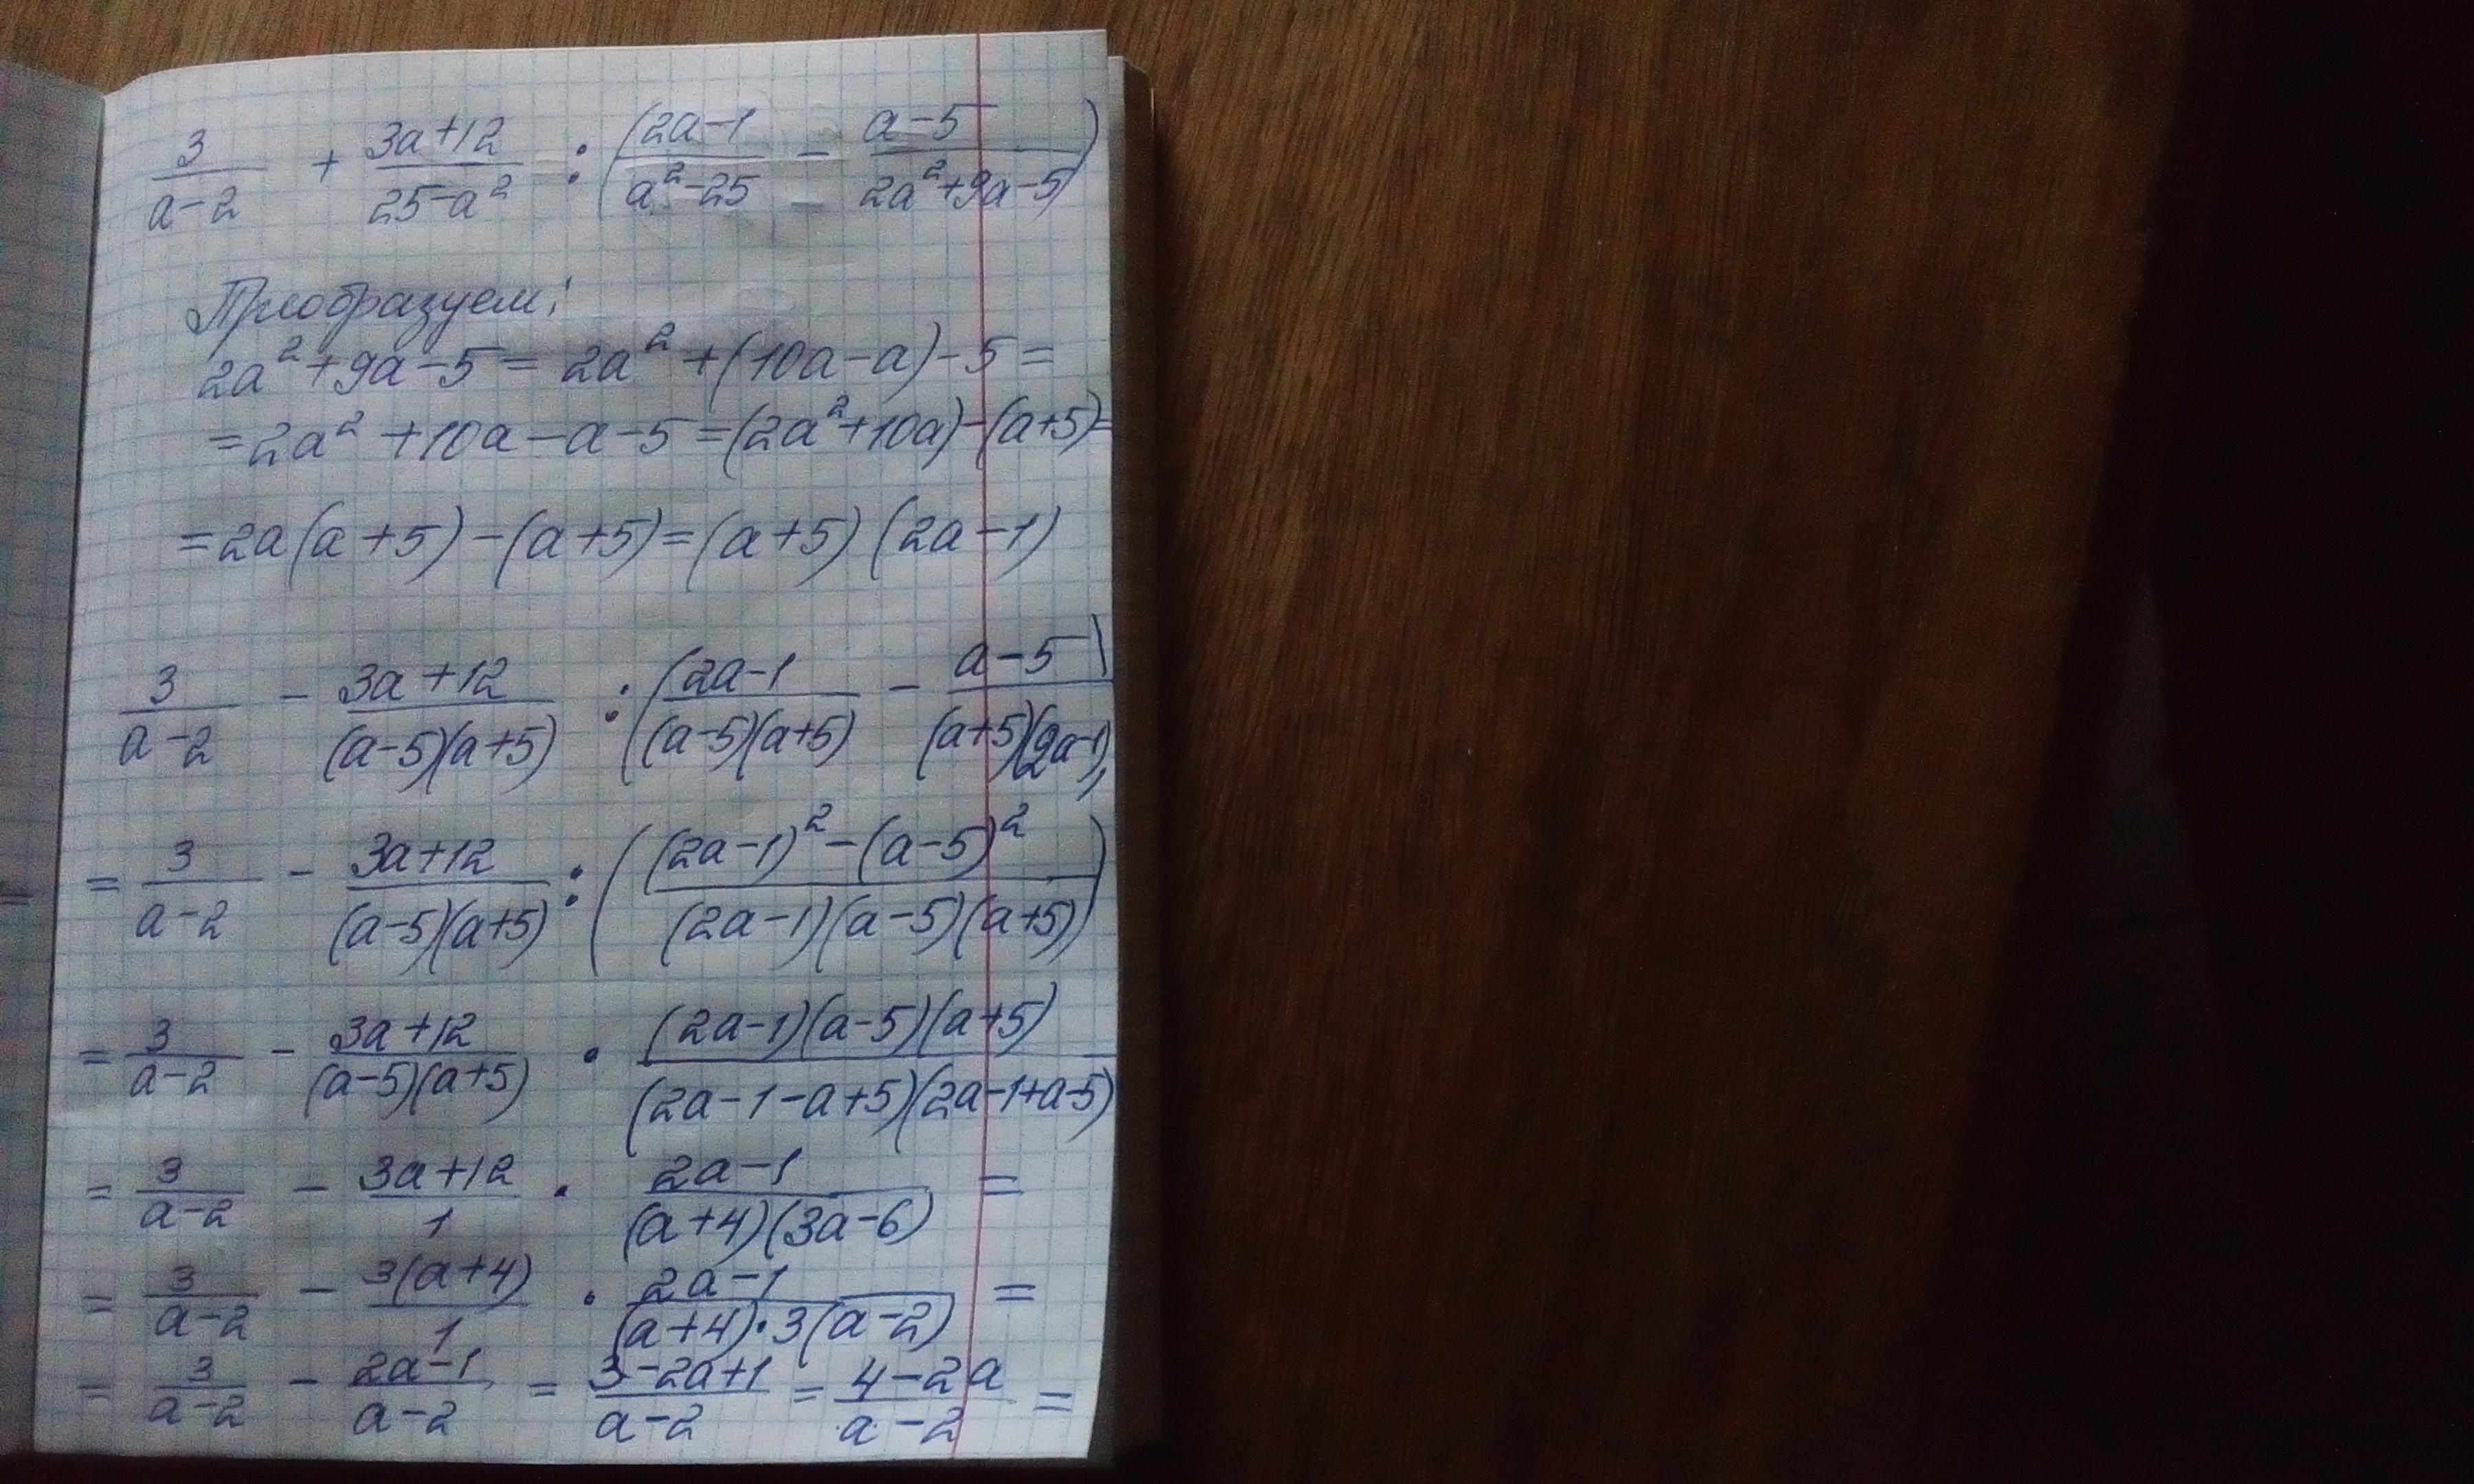 3/(a-2) + (3a+12)/(25-a²) : ((2a-1)/(a²-25) - (a-5)/(2a²+9a-5))
Преобразуем:
2a²+9a-5 = 2a²+(10a-a)-5=
=2a²+10a-a-5=(2a²+10a)-(a+5)=
=2a(a+5)-(a+5)=(a+5)(2a-1)
3/(a-2) - (3a+12)/((a-5)(a+5)) : ((2a-1)/((a-5)(a+5)) - (a-5)/((a+5)(2a-1)))
= 3/(a-2) - (3a+12)/((a-5)(a+5)) : (((2a-1)²-(a-5)²)/((2a-1)(a-5)(a+5)))
= 3/(a-2) - (3a+12)/((a-5)(a+5)) · ((2a-1)(a-5)(a+5))/((2a-1-a+5)(2a-1+a-5))
= 3/(a-2) - (3a+12)/1 · (2a-1)/((a+4)(3a-6)) =
= 3/(a-2) - 3(a+4)/1 · (2a-1)/((a+4)·3(a-2)) =
= 3/(a-2) - (2a-1)/(a-2) = (3-2a+1)/(a-2) = (4-2a)/(a-2) =